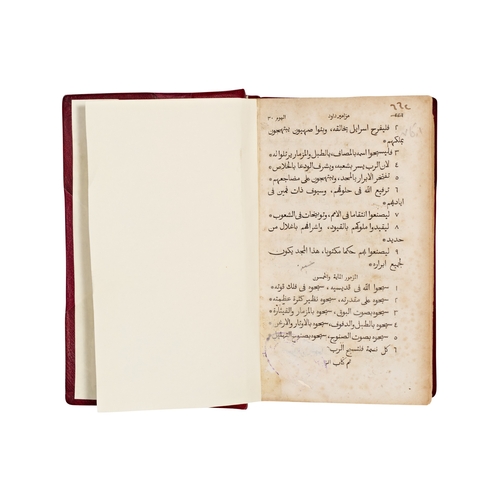 مزمور داود
اليوم ٣٠
٢ فليفرح اسرايل بخالقه، وبنوا صهيون يبتهجون
بملكهم*
٣ فليسبحوا اسمه بالمصاف، بالطبل والمزمار يرتلوا له
٤ لان الرب يسر بشعبه، ويشرف الودعا بالخلاص*
٥ تفتخر الابرار بالمجد، ويبتهجون على مضاجعهم*
٦ ترفيع الله في حلوقهم، وسيوف ذات فمين في
اياديهم*
٧ ليصنعوا انتقاما في الامم، وتوبيخات في الشعوب*
٨ ليقيدوا ملوكهم بالقيود، واشرافهم باغلال من
حديد*
٩ ليصنعوا بهم حكما مكتوبا، هذا المجد يكون
لجميع ابراره*
المزمور المائة والخمسون
١ سبحوا الله في قديسيه، سبحوه في فلك قوته*
٢ سبحوه على مقدرته، سبحوه نظير كثرة عظمته*
٣ سبحوه بصوت البوق، سبحوه بالمزمار والقيثارة*
٤ سبحوه بالطبل والدفوف، سبحوه بالاوتار والارغن*
٥ سبحوه بصوت الصنوج، سبحوه بصنوج التهليل*
٦ كل نسمة فلتسبح الرب*
تم كتاب